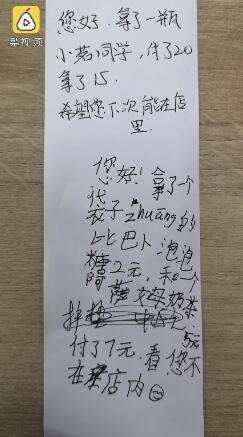 梨视频
您好．拿了一瓶
小茗同学，付了20
拿了15．
希望您下次能在店
里．
您好！拿了一个
袋子zhuāng的
比巴卜泡泡
糖2元，和一个
奶茶
5元
付了7元．看您不
在店内☺